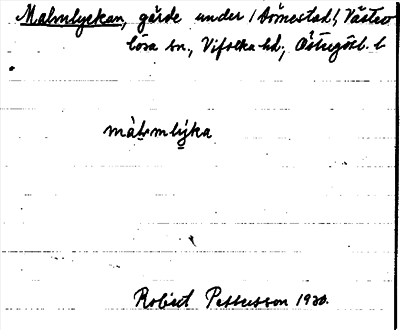 Malmlyckan, gärde under (Dömestad), Västra
Lösa sn., Vifolka hd., Östergötl. l.
màlmlýka
Robert Pettersson 1930.